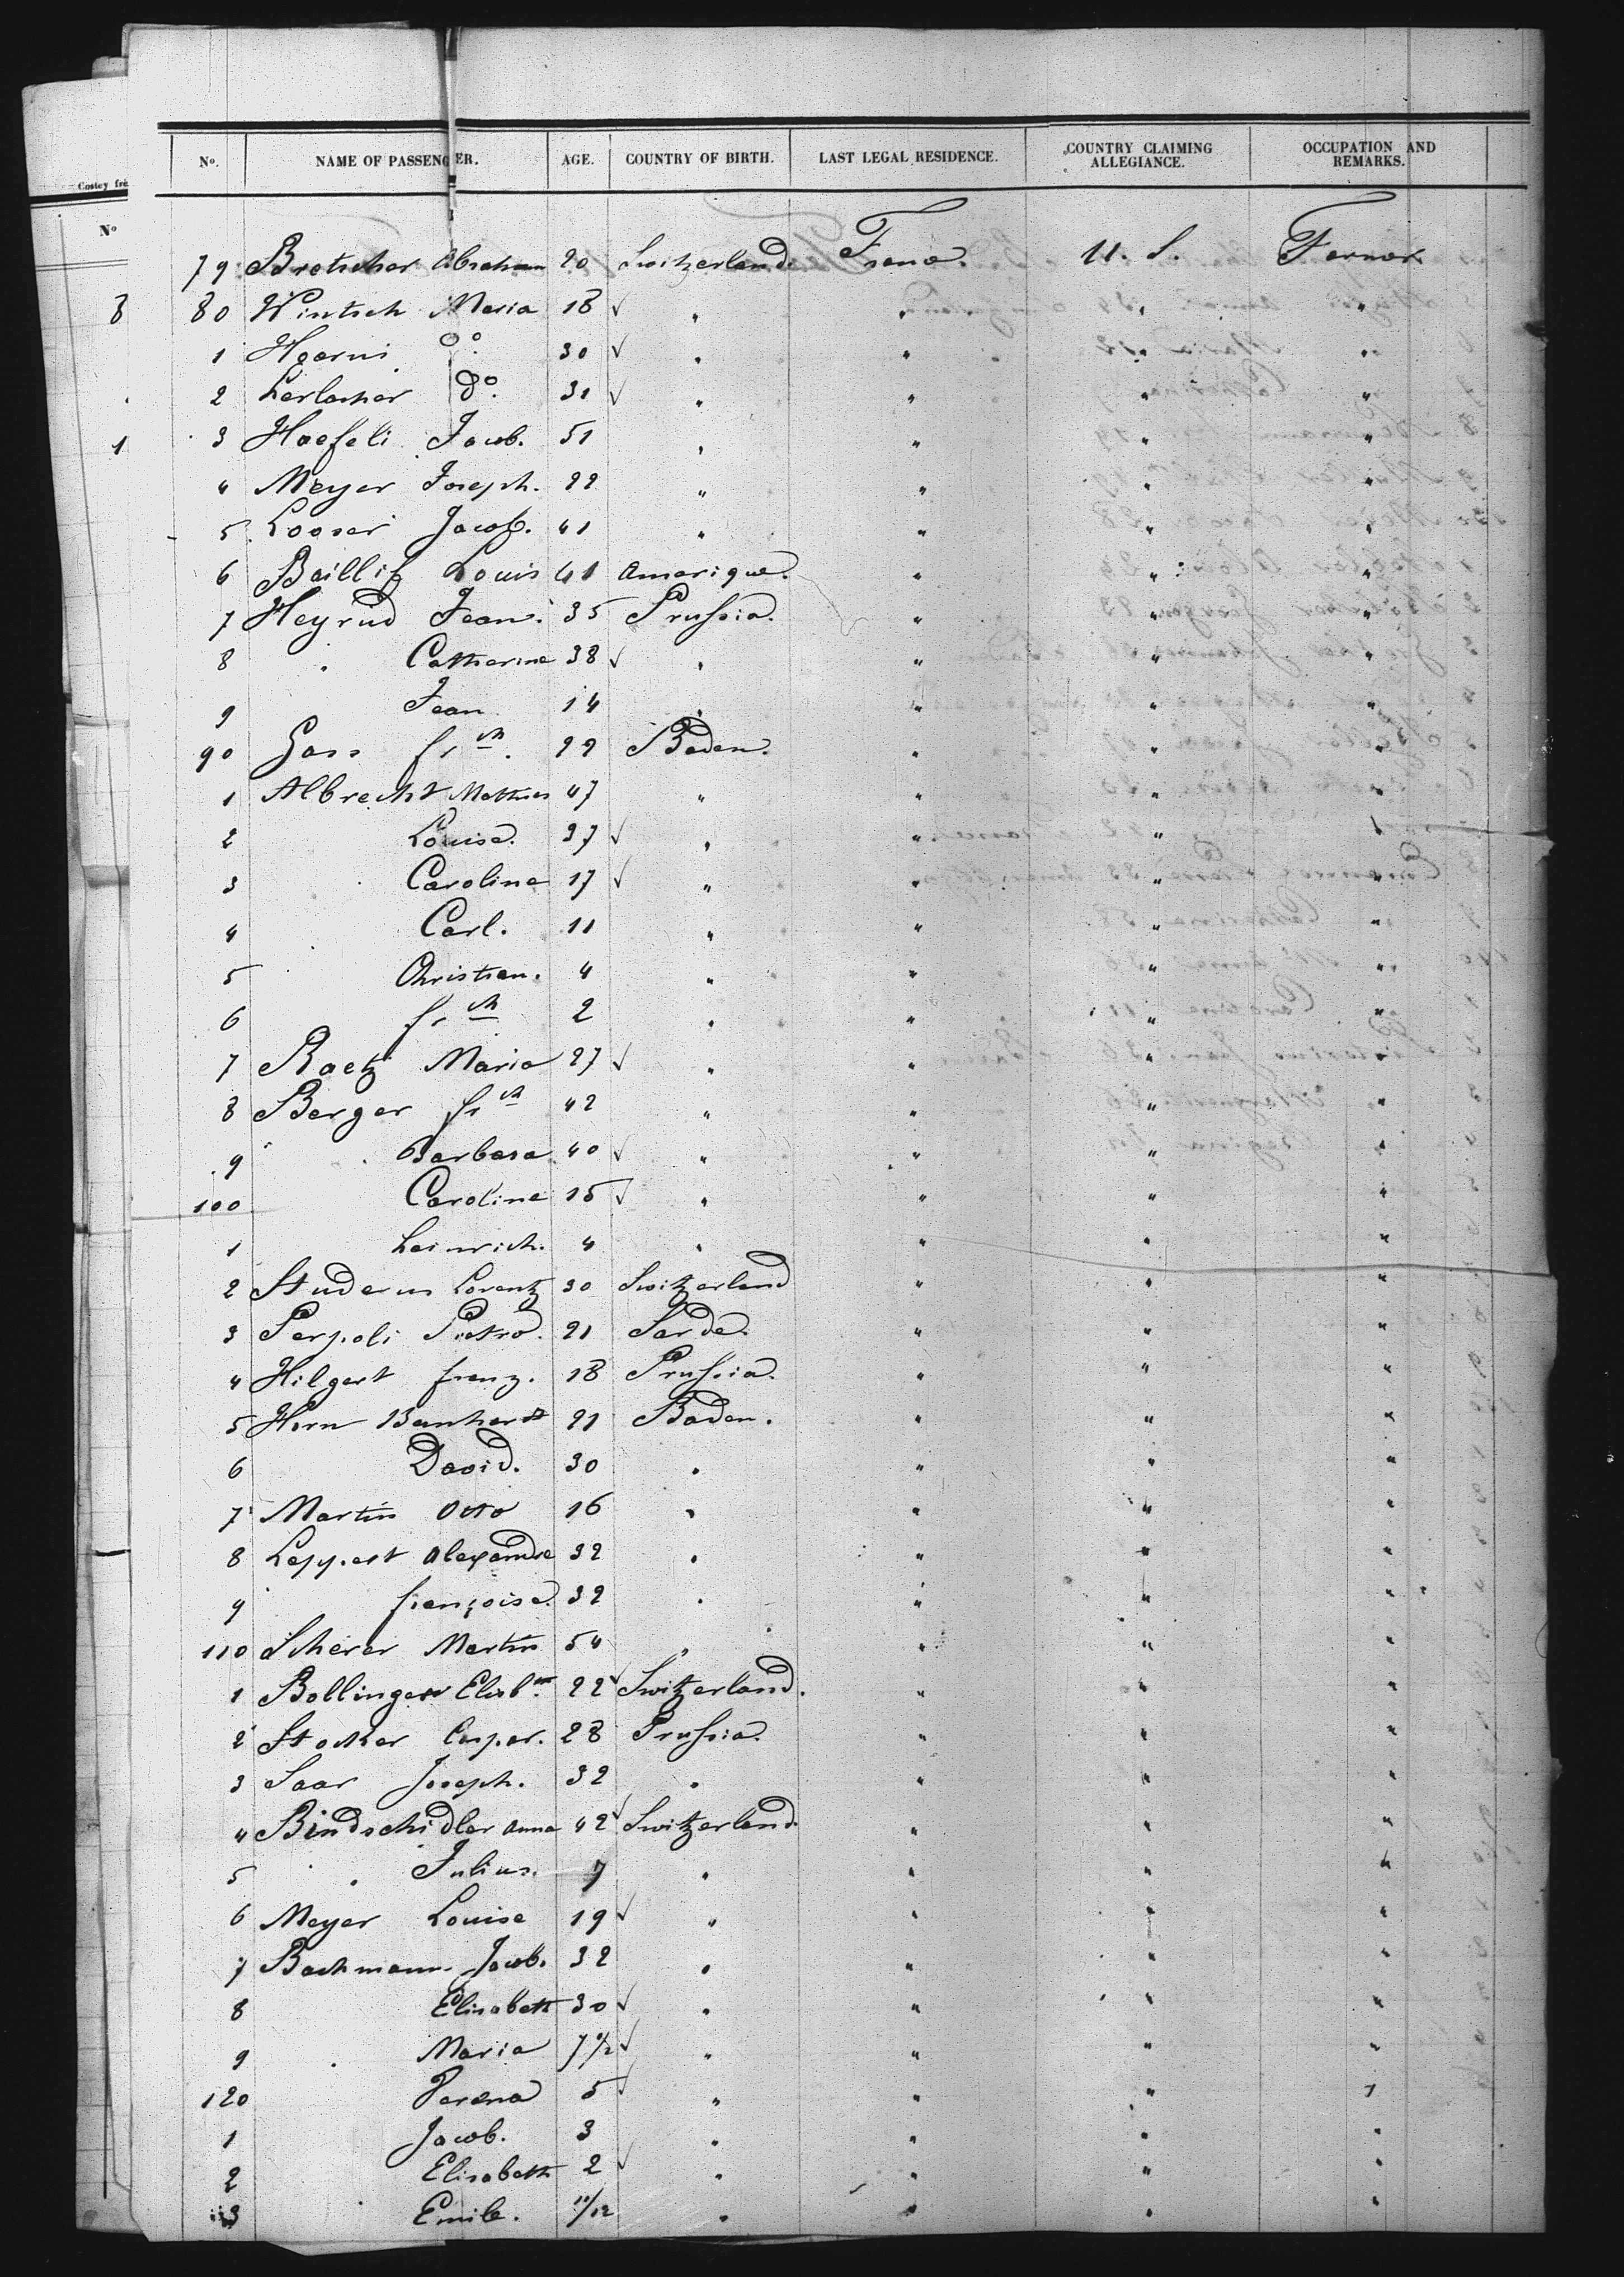 No. NAME OF PASSENGER. AGE. COUNTRY OF BIRTH. LAST LEGAL RESIDENCE. COUNTRY CLAIMING ALLEGIANCE. OCCUPATION AND REMARKS.
79 Bretscher Abraham 20 Switzerland U. S. Farmer
80 Wintsch Maria 18 ✓ " " " "
1 Hoerni do 30 ✓ " " " "
2 Lerlacher do. 31 ✓ " " " "
3 Haefeli Jacob. 51 " " " "
4 Meyer Joseph. 22 " " " "
5 Looser Jacob. 41 " " " "
6 Baillif Louis 41 Amerique. " " "
7 Heyrud Jean. 35 Prussia. " " "
8 " Catherine 38 ✓ " " " "
9 Jean 14 " " " "
90 Gass frch. 22 Baden. " " "
1 Albrecht Mathias 47 " " " "
2 Louise. 37 ✓ " " " "
3 Caroline 17 ✓ " " " "
4 Carl. 11 " " " "
5 Christian. 4 " " " "
6 frch 2 " " " "
7 Raetz Maria 27 ✓ " " " "
8 Berger frch 42 " " " "
9 Barbara 40 ✓ " " " "
100 Caroline 15 ✓ " " " "
1 heinrich. 4 " " " "
2 Studerus Lorentz 30 Switzerland " " "
3 Perpoli Pietro. 21 Sarde. " " "
4 Hilgert franz. 18 Prussia. " " "
5 Horn 21 Baden. " " "
6 David. 30 " " " "
7 Martin Otto 16 " " " "
8 Leppert Alexandre 32 " " " "
9 françoise. 32 " " " "
110 Scherer Martin 54 " " " "
1 Bollinger 22 ✓ Switzerland. " " "
2 Stocker Caspar. 28 Prussia. " " "
3 Saar Joseph. 32 " " " "
4 Bindschidler Anna 42 ✓ Switzerland. " " "
5 " Julius. 7 " " " "
6 Meyer Louise 19 ✓ " " " "
7 Bachmann Jacob. 32 " " " "
8 Elisabeth 30 ✓ " " " "
9 Maria 7 1/2 ✓ " " " "
120 Verena 5 ✓ " " " "
1 Jacob. 3 " " " "
2 Elisabeth 2 ✓ " " " "
3 Emile. 11/12 " " " "